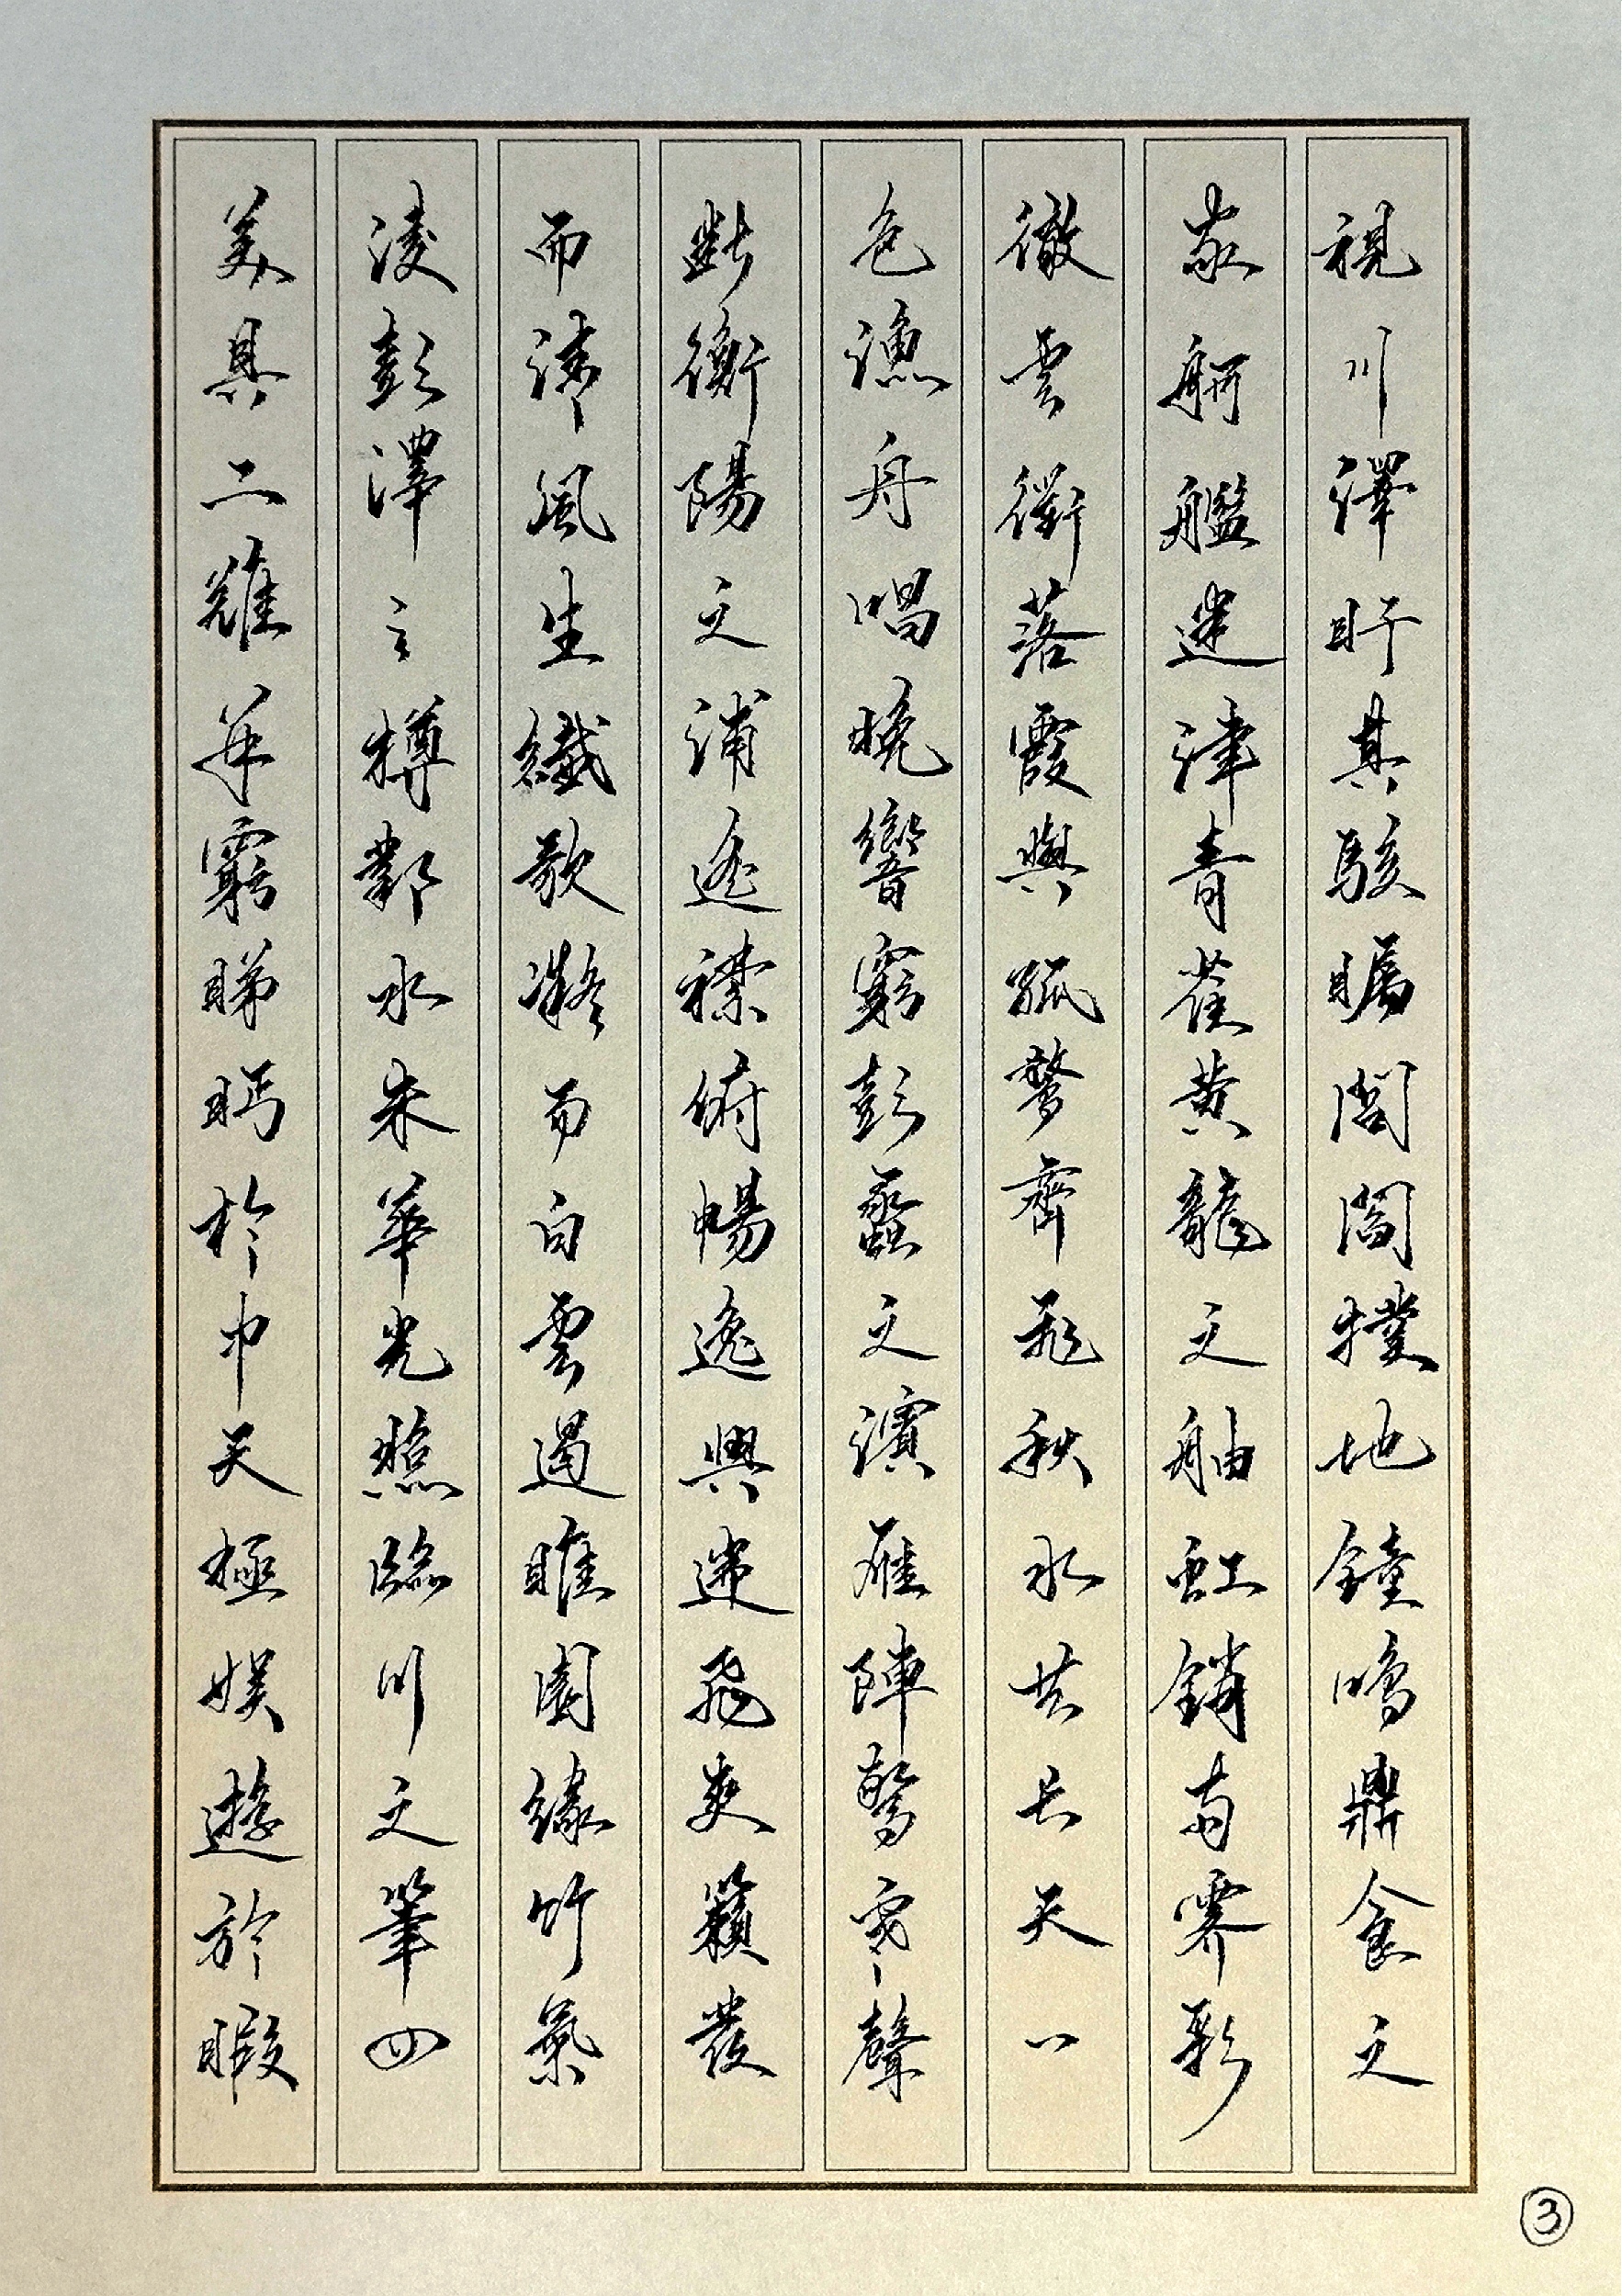 視川澤盱其駭矚閭閻撲地鐘鳴鼎食之
家舸艦迷津青雀黃龍之舳虹銷雨霽彩
徹雲衢落霞與孤鶩齊飛秋水共長天一
色漁舟唱晚響窮彭蠡之濱雁陣驚寒聲
斷衡陽之浦遙襟俯暢逸興遄飛爽籟發
而清風生纖歌凝而白雲遏睢園綠竹氣
淩彭澤之樽鄴水朱華光照臨川之筆四
美具二難并窮睇眄於中天極娛遊於暇
③